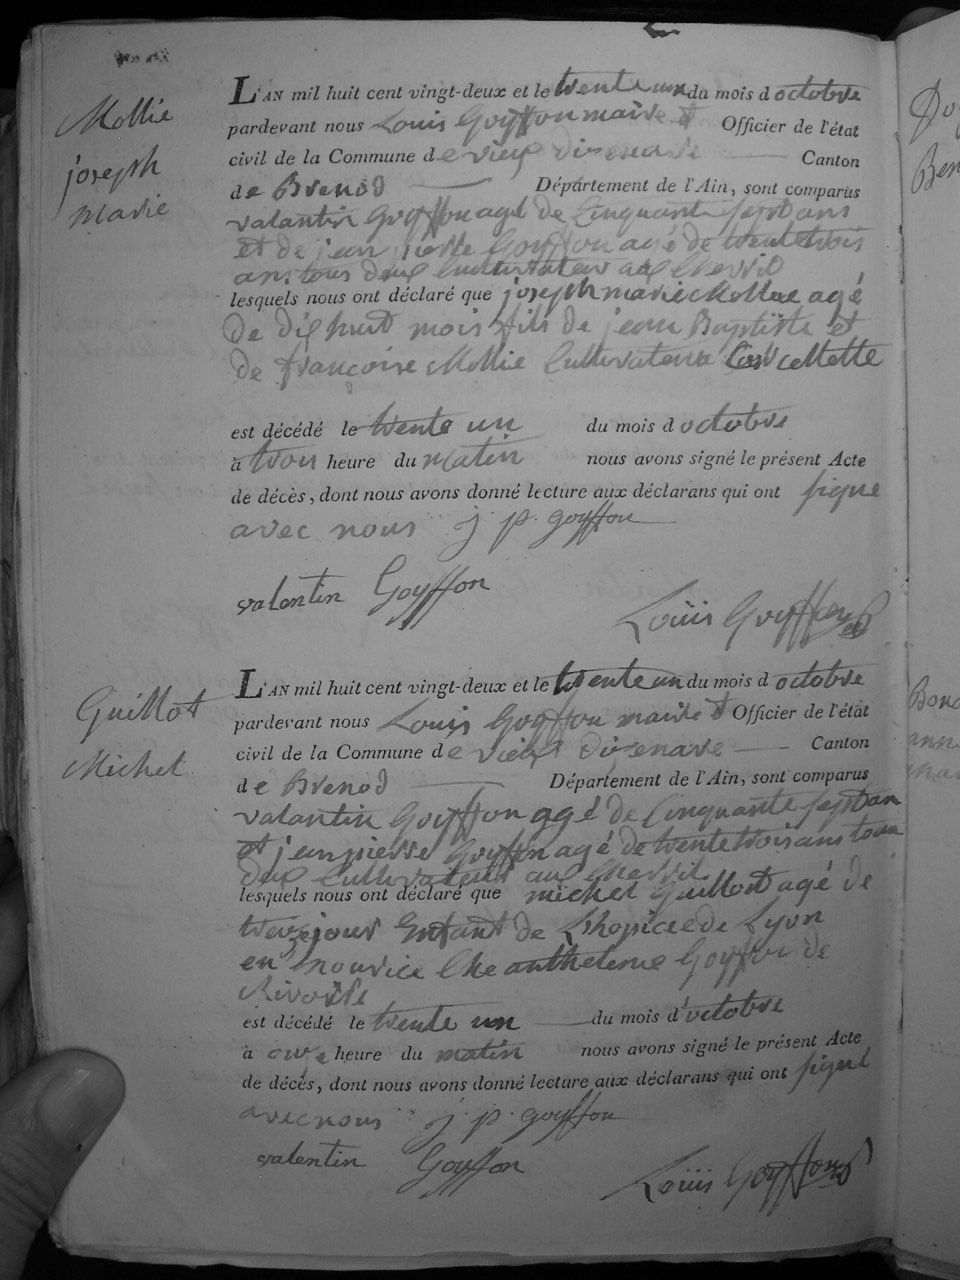 Mollie
joseph
marie
L'AN mil huit cent vingt-deux et le trente un du mois d octobre
pardevant nous Louis Goyffon maire et Officier de l'état
civil de la Commune de vieux dizenave Canton
de Brenod Département de l'Ain, sont comparus
valantin Goyffon agé de Cinquante sept ans
et de jean pierre Goyffon agé de trente trois
ans tous deux Cultivateur au Chevril
lesquels nous ont déclaré que joseph marie Mollie agé
de dix huit mois fils de jean Baptiste et
de francoise Mollie Cultivateur
est décédé le trente un du mois d octobre
à trois heure du matin nous avons signé le présent Acte
de décès, dont nous avons donné lecture aux déclarans qui ont signe
avec nous j. p. goyffon
valentin Goyffon
Louis Goyffon
Guillot
Michel
L'AN mil huit cent vingt-deux et le trente un du mois d octobre
pardevant nous Louis Goyffon maire et Officier de l'état
civil de la Commune de vieux dizenave Canton
de Brenod Département de l'Ain, sont comparus
valantin Goyffon agé de Cinquante sept an
et jean pierre Goyffon agé de trente trois ans tous
deux Cultivateur au Chevril
lesquels nous ont déclaré que michel Guillot agé de
jour Enfant de Lhopice de Lyon
en nourice Che anthelme Goyffon de
est décédé le trente un du mois d'octobre
à onze heure du matin nous avons signé le présent Acte
de décés, dont nous avons donné lecture aux déclarans qui ont signé
avec nous j. p. goyffon
valentin Goyffon
Louis Goyffon